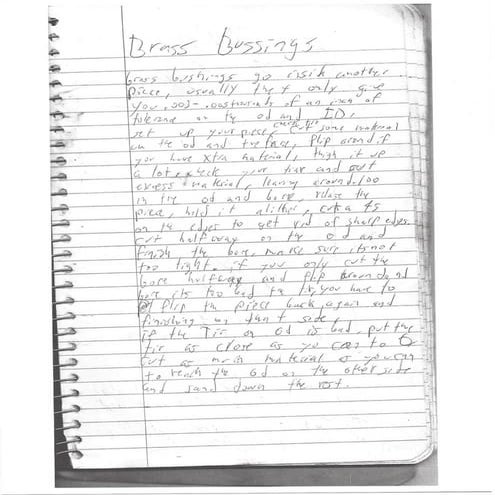 Brass Bussings
brass bushings go insid another
piece, usually they only give
you .003-.005thousands of an inch of
tolerance on the od and ID,
set up your piece, cut some material
on the od and the face, flip around if
you have xtra material, through it up
a lot, check your size and cut
excess material, leaving around .100
in the od and bore, release the
piece, hold it a litter, cut a 45
on the edges to get rid of sharp edges.
cut halfway on the od and
finish the bore, make sure its not
too tight. if you only cut the
bore halfway and flip around and
bore its too bad the tir, you have to
flip the piece back again and
finishing on that side,
if the Tir on od is bad, put the
tir as close as you can to 0
cut as much material as you can
to reach the od on the other side
and sand down the rest.